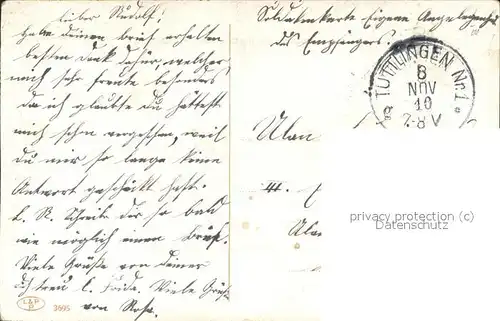 Lieber Rudolf!
Habe deinen Brief erhalten
besten Dank dafür, welcher
mich sehr freute besonders
da ich glaubte du hättest
mich schon vergessen, weil
du mir so lange keine
Antwort geschickt hast.
L. R. Schreibe dir so bald
wie möglich einen Brief.
Viele Grüße von deiner
dich treu l. Frida. Viele Grüße
von Rosa.
L&P
3695
Soldatenkarte Eigene Angelegenheit
des Empfängers.
TUTTLINGEN No 1.
8
NOV
10
7-8 V
Ulan
III.
Ulan
privacy protection (c)
Datenschutz